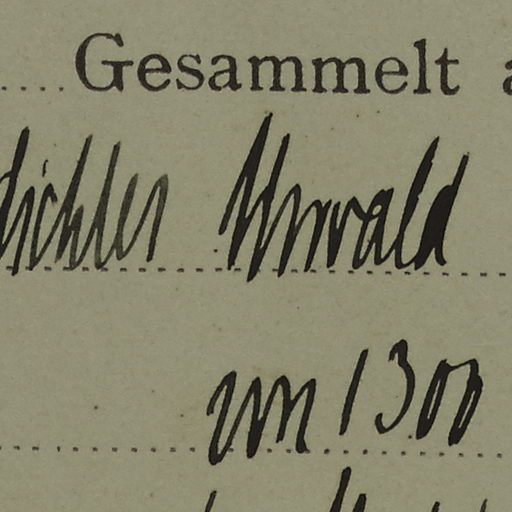 Gesammelt a
dichter Urwald
um 1300